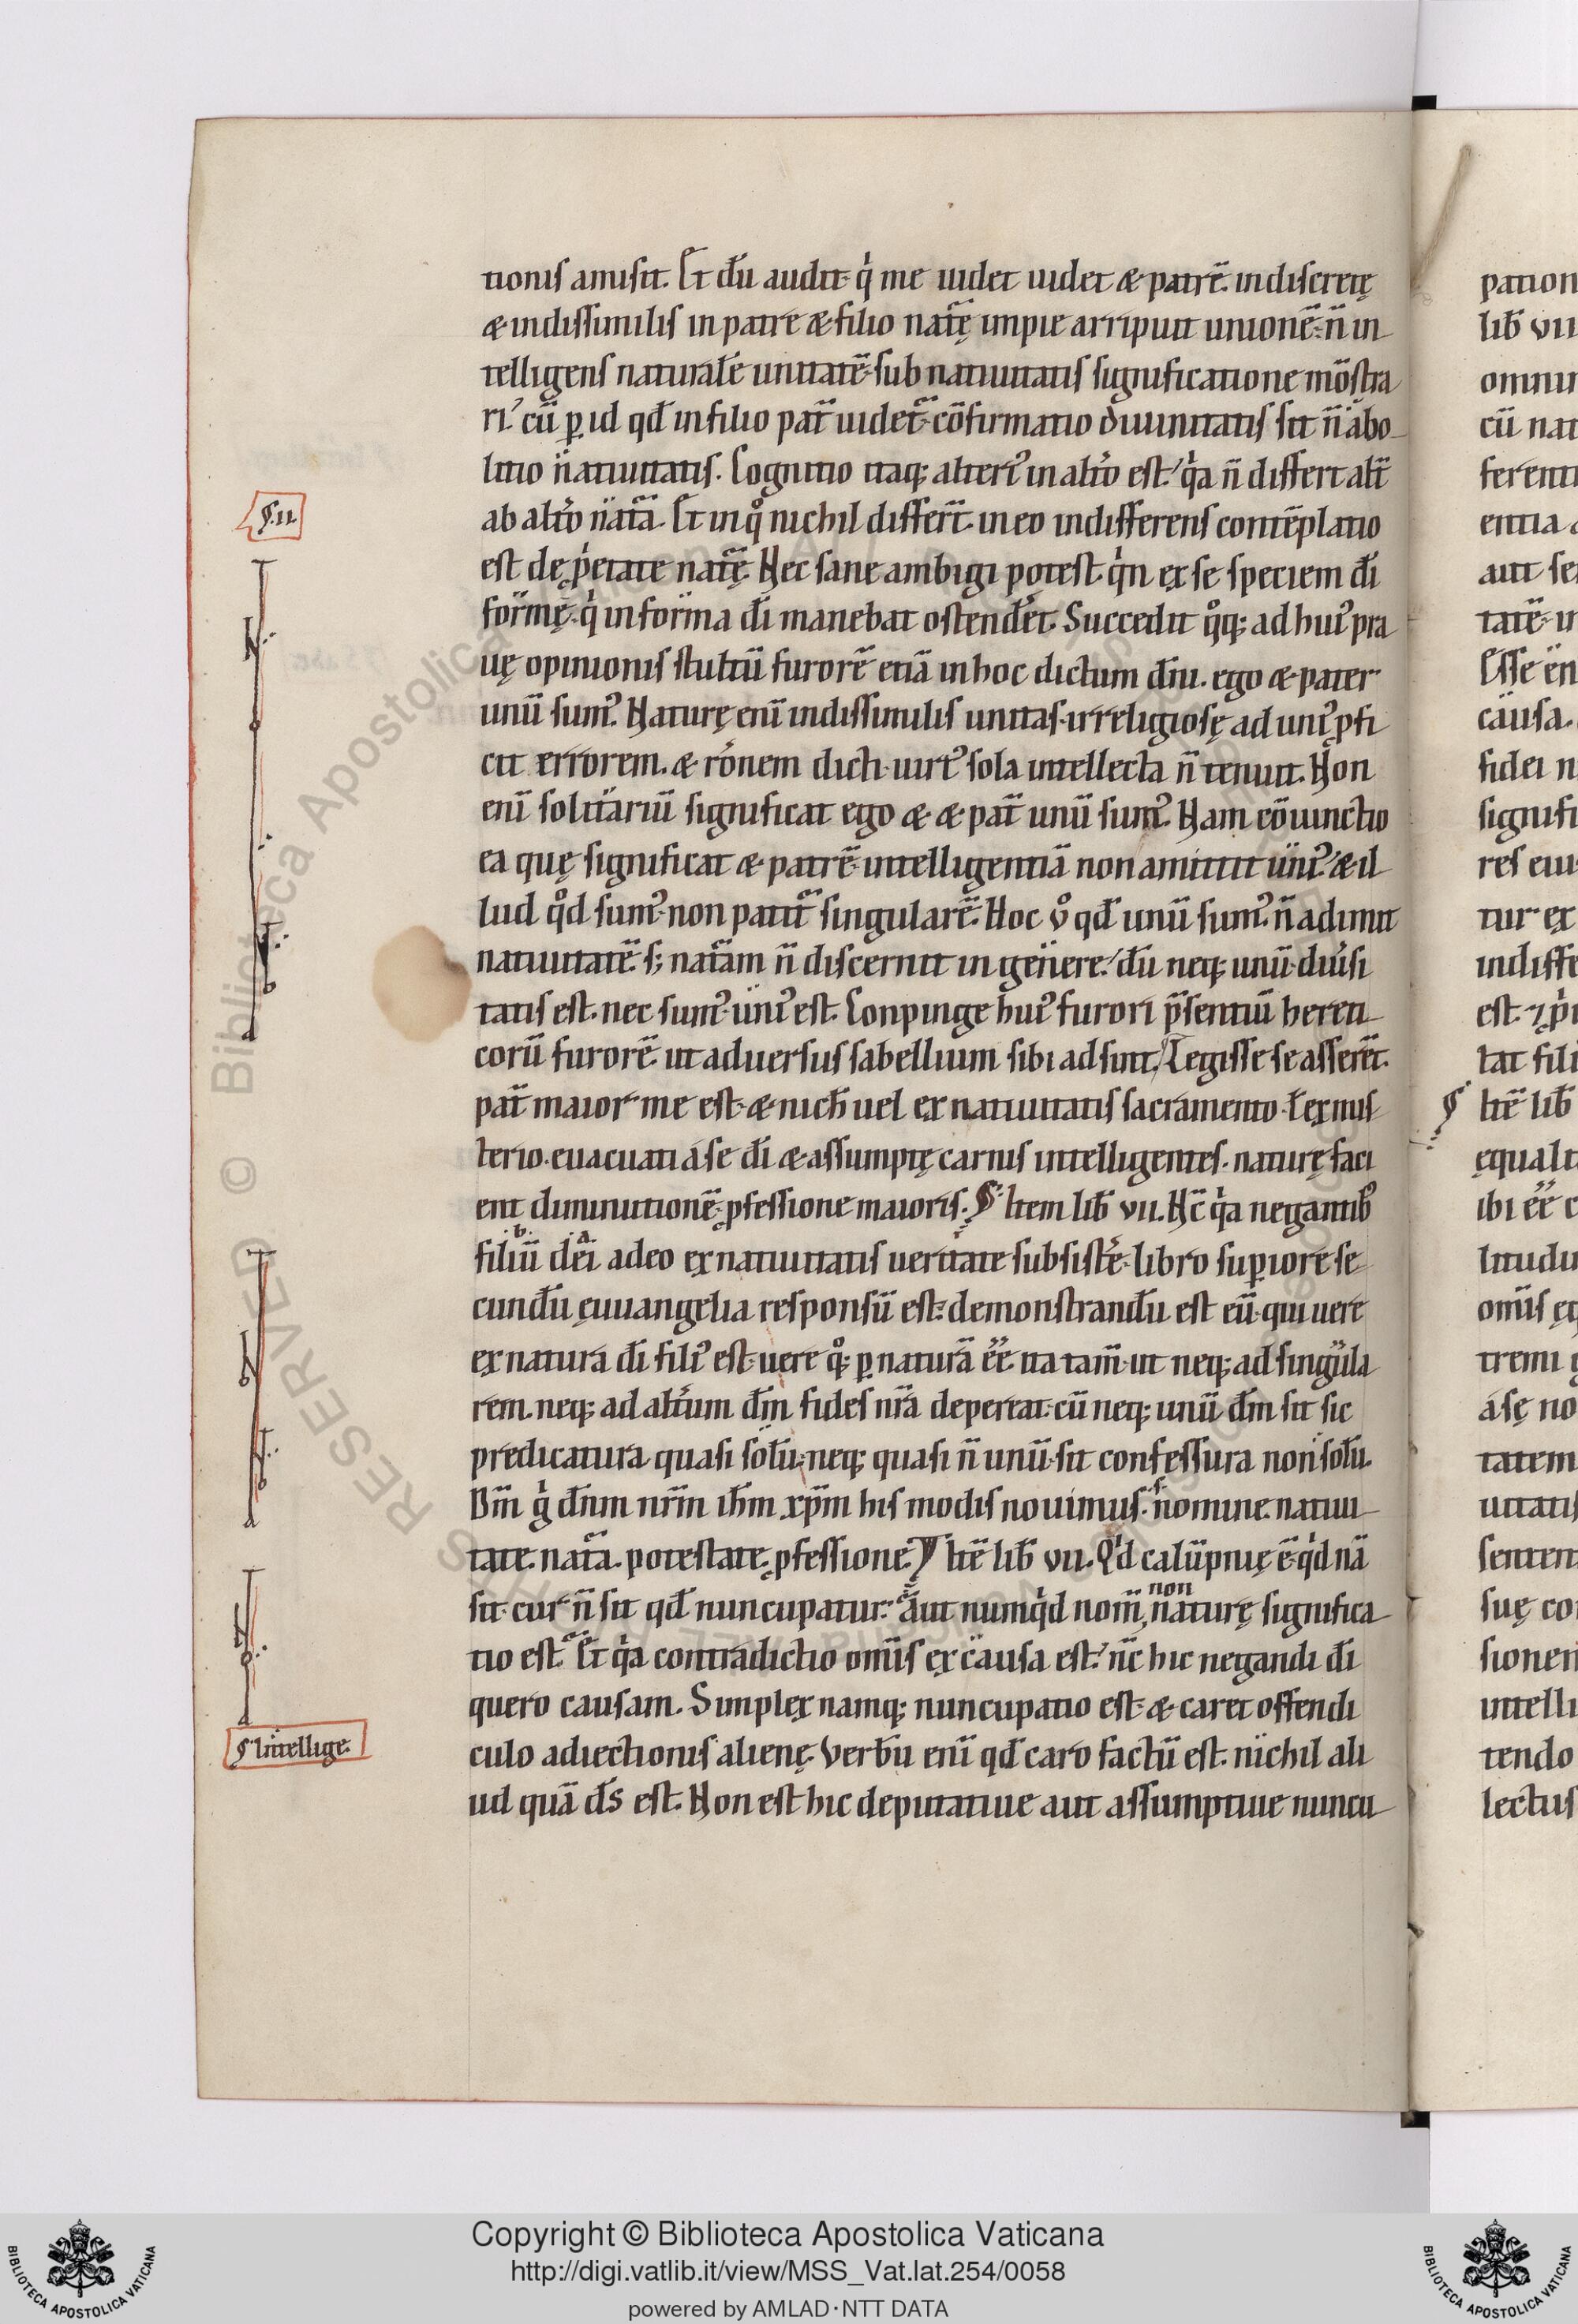 tionis amisit. Et dū audit· q̇ me uidet uidet & patrē. indiscretę
& indissimilis in patre & filio nat̄ę impie arripuit unionē· n̄ in
telligens naturalē unitatē· sub natiuitatis significatione mōstra
ri· cū ꝑ id qđ in filio pat̄ uidet̄· cōfirmatio diuinitatis sit n̄ abo
litio natiuitatis. Cognitio itaq; alteri᾽ in alt̓o est· q̇a n̄ differt alt̄
ab alt̓o nat̄a. Et in qͦ nichil differt̄· in eo indifferens contēplatio
est de ꝓp̓etate nat̄ę. Nec sane ambigi potest· q̇n ex se speciem dī
formę· q̇ in forma dī manebat ostender̄et. Succedit qͦq; ad hui᾽ pra
uę opinionis stultū furorē etiā in hoc dictum dn̄i. ego & pater
unū sum᾽. Naturę enī indissimilis unitas· irreligiosę ad uni᾽ ꝓfi
cit errorem. & rōnem dicti· uirt᾽ sola intellecta n̄ tenuit. Non
enī solitariū significat ego & & pat̄ unū sum᾽. Nam cōiunctio
ea quę significat & patrē· intelligentiā non amittit uni᾽· & il
lud qͦd sum᾽· non patit̄ singularē. Hoc ůͦ qđ unū sum᾽· n̄ adimit
natiuitatē· s; nat̄am n̄ discernit in genere· dū neq; unū· diu̓si
tatis est· nec sum᾽· uni᾽ est. Conpinge hui᾽ furori p̄sentiū hereti
corū furorē ut aduersus sabellium sibi adsint. Legisse se asserēt·
pat̄ maior me est· & nich̄ uel ex natiuitatis sacramento· ł ex mis
terio· euacuati a se dī & assumptę carnis intelligentes· naturę faci
ent diminutionē· ꝓfessione maioris. ¶ Item lib̄ vii. Nc̄ q̇a negantib᾽
filiū dei adeo ex natiuitatis ueritate subsister̄e· libro suꝑiore se
cundū ęuuangelia responsū est· demonstrandū est eū· qui uere
ex natura dī fili᾽ est· uere qͦq; ꝑ naturā eē· ita tam̄· ut neq; ad singula
rem· neq; ad alt̓um dm̄ fides nr̄a depereat· cū neq; unū dm̄ sit sic
predicatura quasi solū· neq; quasi n̄ unū· sit confessura non solū.
Dm̄ g̓ dn̄m nr̄m ih̄m xp̄m his modis nouimus· nomine· natiui
tate· nat̄a· potestate· ꝓfessione. ¶ Itē lib̄ vii. Qͥd calūpnię ē· q̇d nā
sit· cur n̄ sit qđ nuncupatur· aut numq̇d nom̄ non naturę significa
tio est· Et q̇a contradictio om̄is ex causa est· nc̄ hic negandi dī
quero causam. Simplex namq; nuncupatio est· & caret offendi
culo adiectionis alienę. Verbū enī qđ caro factū est· nichil ali
ud quā ds̄ est. Non est hic deputatiue aut assumptiue nuncu
¶ Intellige.
Copyright © Biblioteca Apostolica Vaticana
http://digi.vatlib.it/view/MSS_Vat.lat.254/0058
powered by AMLAD·NTT DATA
BIBLIOTECA APOSTOLICA VATICANA
BIBLIOTECA APOSTOLICA VATICANA